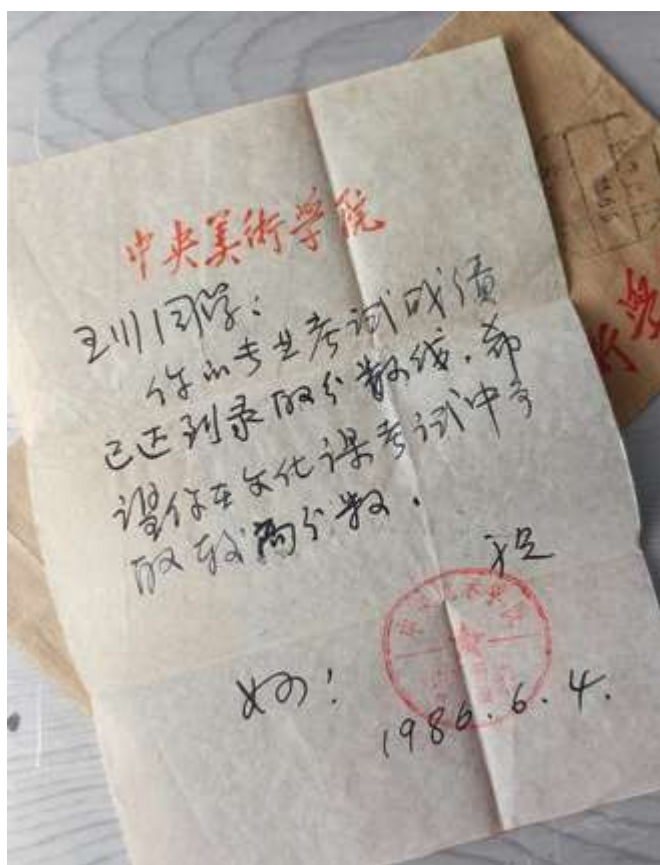 中央美術学院
王川同学：
你的专业考试成绩
已达到录取分数线，希
望你在文化课考试中争
取较高分数。
祝
好！
1986.6.4.